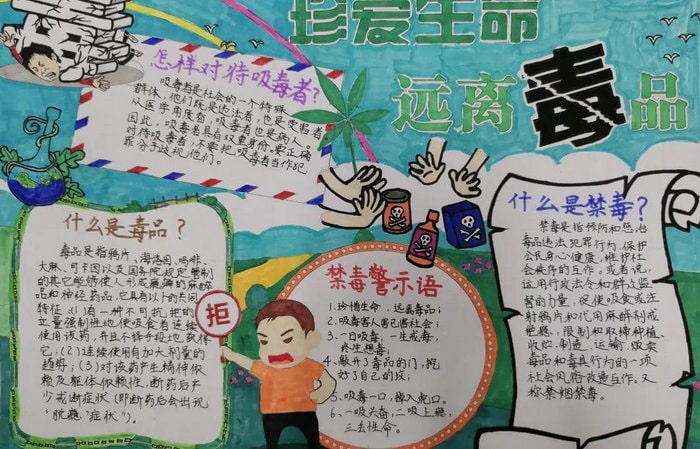 珍爱生命
远离毒品
怎样对待吸毒者?
吸毒者是社会的一个特殊
群体,他们既是违法者,也是受害者
从医学角度看,吸毒者也是病人。
因此,吸毒者具有双重身份,要正确
对待吸毒者,不要把吸毒者当作犯
罪分子歧视他们。
什么是毒品?
毒品是指鸦片、海洛因、吗啡、
大麻、可卡因以及国务院规定管制
的其它能够使人形成瘾癖的麻醉
品和神经药品,它具有以下的共同
特征(1)有一种不可抗拒的
力量强制性地使吸食者连续
使用该药,并且不择手段地获得
它;(2)连续使用有加大剂量的
趋势;(3)对该药产生精神依
赖及躯体依赖性,断药后产
生戒断症状(即断药后会出现
"脱瘾"症状")。
拒
禁毒警示语
1.珍惜生命,远离毒品;
2.吸毒害人害己害社会;
3.一日吸毒,一生戒毒,
终生想毒;
4.敞开了毒品的门,挖
好了自己的坟;
5.吸毒一口,掉入虎口。
6.一吸兴奋,二吸上瘾,
三丢性命。
什么是禁毒?
禁毒是指预防和惩治
毒品违法犯罪行为,保护
公民身心健康,维护社
会秩序的工作。或者说,
运用行政法令和群众监
督的力量,促使吸食或注
射鸦片和代用麻醉剂戒
绝瘾,限制和取缔种植、
收贮、制造、运输、贩卖
毒品和毒具行为的一项
社会风俗改造工作。又
称禁烟禁毒。